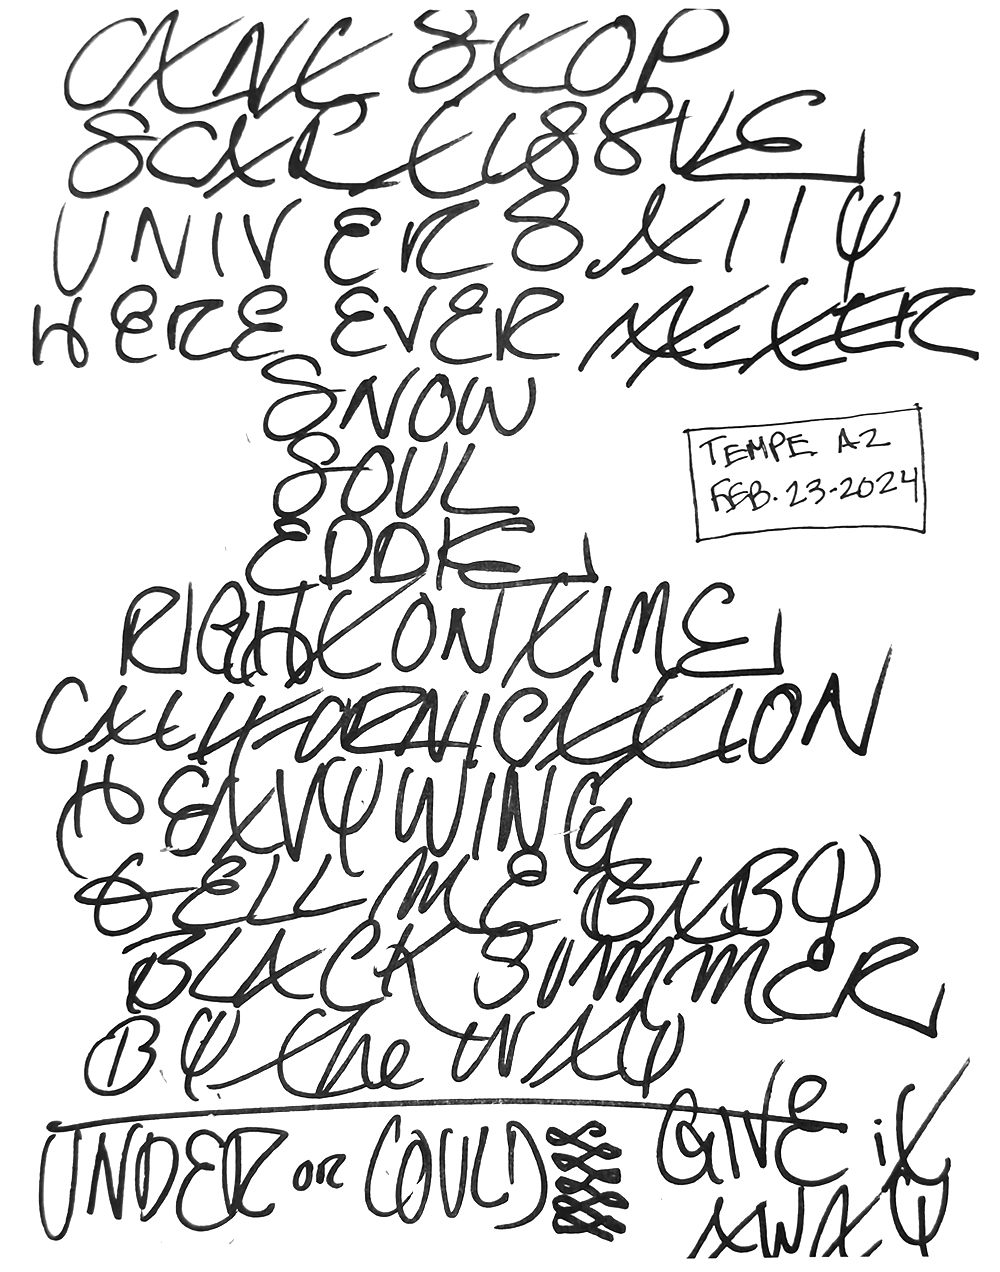 CANT STOP
SCAR TISSUE
UNIVERSALLY
HERE EVER AFTER
SNOW
SOUL
TEMPE AZ
FEB. 23-2024
EDDIE
RIGHT ON TIME
CALIFORNICATION
HEAVY WING
TELL ME BABY
BLACK SUMMER
BY the WAY
UNDER or COULD
GIVE it
AWAY